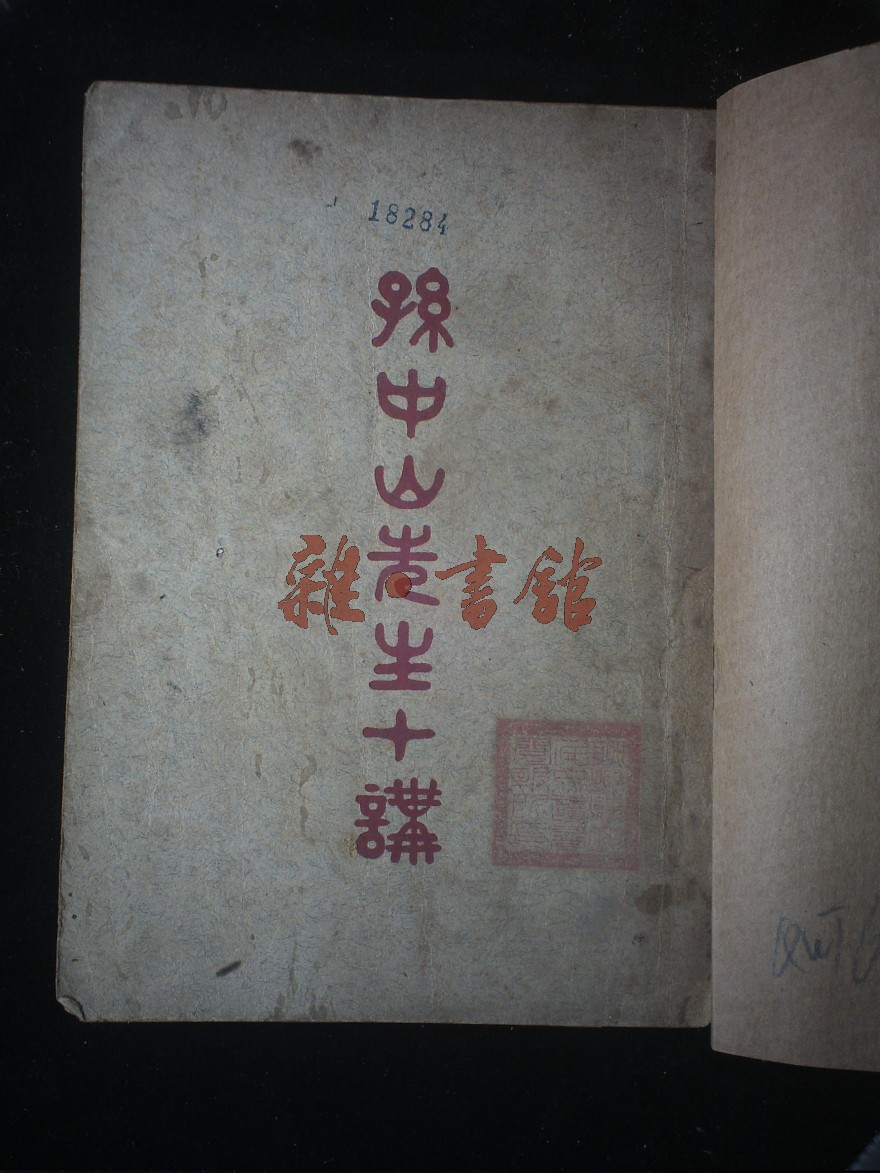 18284
孫中山先生十講
雜·書館